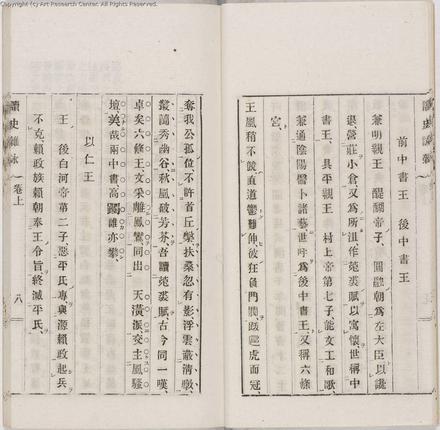 Copyright (c) Art Research Center. All Rights Reserved.
前中書王　後中書王
兼明親王　醍醐帝子、圓融朝爲左大臣以讒
退營莊小倉又爲所沮作菟裘賦以寓懷世稱中
書王、具平親王　村上帝第七子能文工和歌
兼通陰陽醫卜諸藝世呼爲後中書王又稱六條
宮
王風稍不競直道鬱難伸彼狂負門
虎而冠
奪我公孤位不許首丘
扶桑忽有影浮雲蔽清
叢蘭秀幽谷秋風破芳
吾讀菟裘賦古今同一嘆
卓矣六條王文采離鳳鸞同出　天潢派交主風騷
壇美哉兩中書高躅難亦攀
以仁王
王　後白河帝第二子惡平氏專與源賴政起兵
不克賴政族賴朝奉王令旨終滅平氏
讀史雜詠　卷上　八